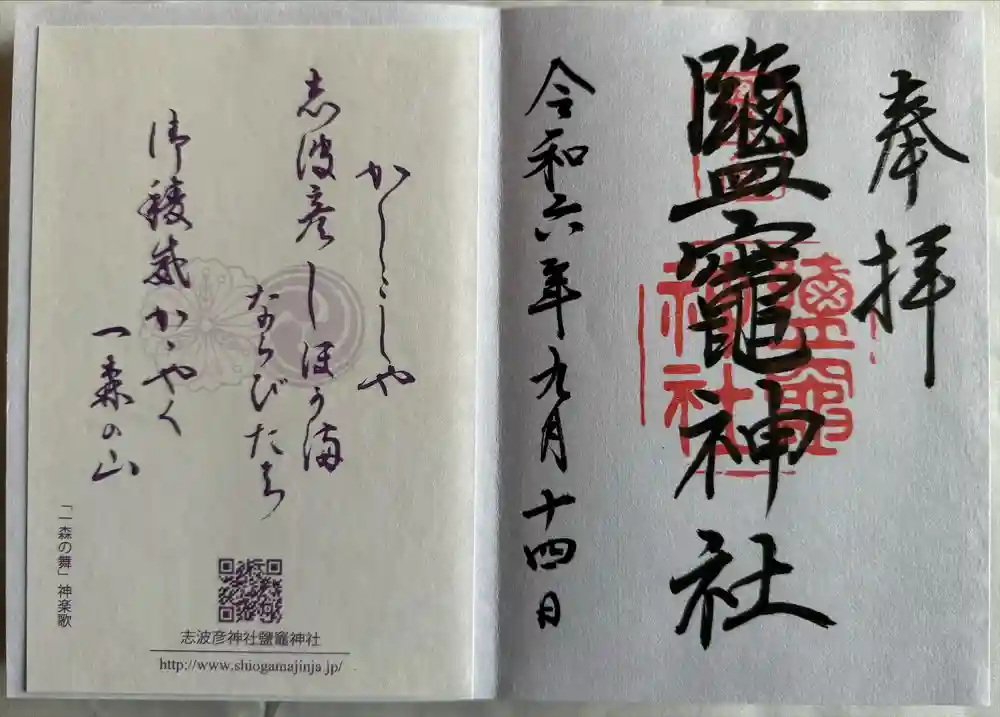 奉拝
鹽竈神社
鹽竈
神社
令和六年九月十四日
かしこしや
志波彦しほかま
ならびたち
御稜威かゝやく
一森の山
「一森の舞」神楽歌
志波彦神社鹽竈神社
http://www.shiogamajinja.jp/